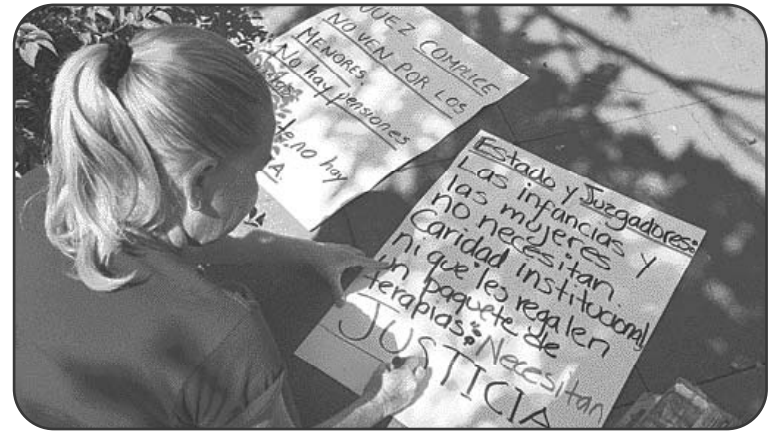 JUEZ COMPLICE
NO VEN POR LOS
MENORES.
No hay pensiones
no hay
Estado y Juzgadores:
Las infancias y
las mujeres
no necesitan
Caridad institucional
ni que les regalen
un paquete de
terapias: Necesitan
JUSTICIA